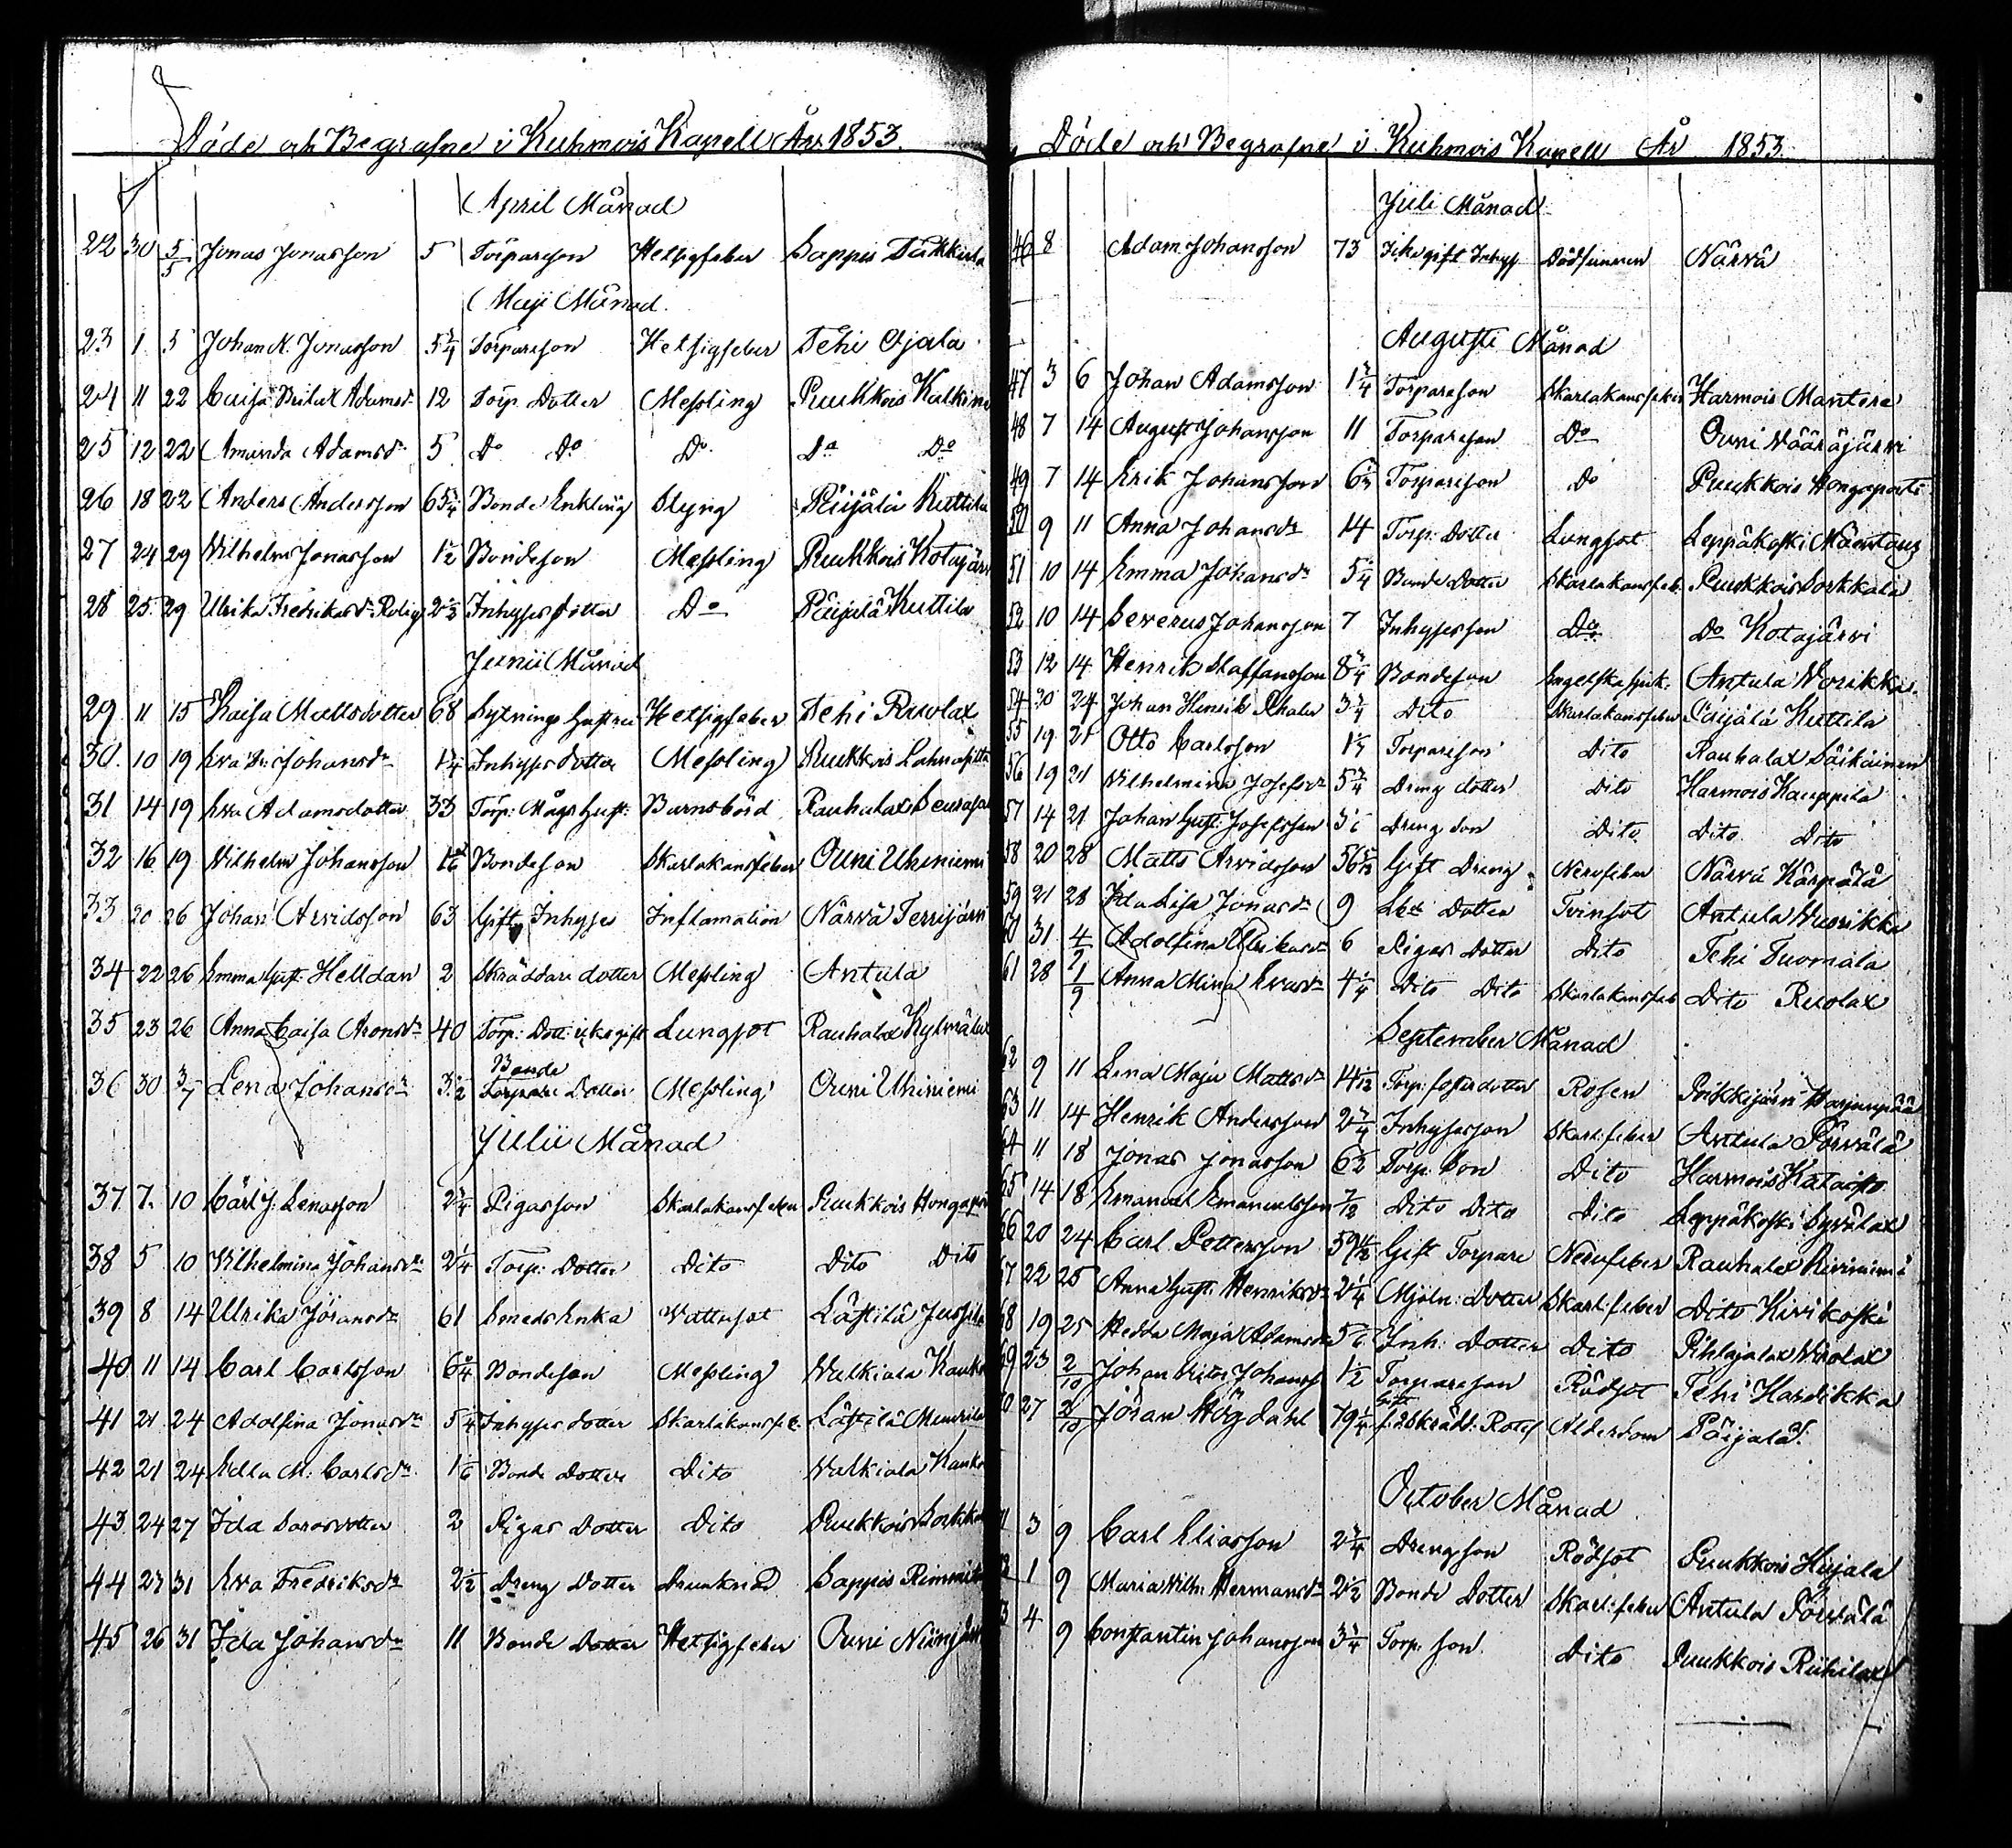 Döde och Begrafne i Kuhmois Kapell År 1853.
April Månad
22 30 5/5 Jonas Jonasson 5 Torpareson Hetsigfeber Sappis
Maji Månad
23 1 5 Johan H. Jonasson 5 3/4 Torpareson Hetsigfeber Tehi Ojala
24 11 22 Caisa Adamsdr 12 Torp Dotter Messling Puukkois
25 12 22 Amanda Adamsdr 5 Do Do Do Do Do
26 18 22 Anders Andersson 65 3/4 Bonde Enkling Styng Päijälä Kuttila
27 24 29 Wilhelm Jonasson 1 1/2 Bondeson Messling Puukkois Kotajärvi
28 25 29 Ulrika Fredriksdr Rolig 2 1/2 Inhyses Dotter Do Päijälä Kuttila
Junii Månad
29 11 15 Kaisa Mattsdotter 68 Sytnings Hetsigfeber Tehi Ruolax
30 10 19 Eva Johansdr 1 1/4 Inhyses dotter Messling Puukkois
31 14 19 Eva Adamsdotter 33 Torp: Mågs hust: Barnsbörd Rauhalax
32 16 19 Wilhelm Johansson Bondeson Skarlakansfeber Ouni Uhiniemi
33 20 26 Johan Arvidsson 63 Gift Inhyses Inflamation Närvä Terrijärvi
34 22 26 Emma Gust: Helldan 2 Skräddare dotter Messling Antula
35 23 26 Anna Caisa Aronsdr 40 Torp: Dott: icke gift Lungsot Rauhalax
36 30 3/7 Lena Johansdr 3 1/2 Bonde Torpare Dotter Messling Ouni Uhiniemi
Julii Månad
37 7 10 Carl J: Lenasson 2 3/4 Pigasson Skarlakansfeber Puukkois
38 5 10 Wilhelmina Johansdr 2 1/4 Torp: Dotter Dito Dito Dito
39 8 14 Ulrika Jöransdr 61 Smeds Enka Wattusot Lästilä
40 11 14 Carl Carlsson 6 3/4 Bondeson Messling Walkiala
41 21 24 Adolfina Jonasdr 5 1/4 Inhyses dotter Skarlakansfeb. Lästilä
42 21 24 Edla M: Carlsdr 1/6 Bonde Dotter Dito Walkiala
43 24 27 Ida Sarasdotter 2 Pigas Dotter Dito Puukkois
44 27 31 Eva Fredriksdr 2 1/2 Dreng Dotter Drunknad Sappis
45 26 31 Ida Johansdr 11 Bonde Dotter Hetsigfeber Ouni
Döde och Begrafne i Kuhmois Kapell År 1853.
Juli Månad
46 8 Adam Johansson 73 Icke gift Inhys Närvä
Augusti Månad
47 3 6 Johan Adamsson 1 3/4 Torpareson Skarlakansfeber Harmois Mantere
48 7 14 August Johansson 11 Torpareson Do Ouni Vääräjärvi
49 7 14 Erik Johansson Torpareson Do Puukkois
50 9 11 Anna Johansdr 14 Torp: Dotter Lungsot Leppäkoski
51 10 14 Emma Johansdr 5 1/4 Bonde Dotter Skarlakansfeb. Puukkois Sorkkala
52 10 14 Severus Johansson 7 Inhysesson Do Do Kotajärvi
53 12 14 Henrik Staffansson 8 3/4 Bondeson Engelska sjuk. Antula
54 20 24 Johan Henrik 3 3/4 Dito Skarlakansfeber Päijälä Kuttila
55 19 21 Otto Carlsson Torpareson Dito Rauhalax
56 19 21 Wilhelmina Josefsdr 5 3/4 Dreng dotter Dito Harmois Kauppila
57 14 21 Johan Gust: Josefsson Dreng son Dito Dito Dito
58 20 28 Matts Arvidsson Gift Dreng Nervfeber Närvä Kärpälä
59 21 28 Ida Lisa Jonasdr 9 Dotter Tvinsot Antula
60 31 4/9 Adolfina Ulrikasdr 6 Pigas Dotter Dito Tehi Tuomala
61 28 1/9 Anna Mina Evasdr 4 1/4 Dito Dito Skarlakansfeb Dito Ruolax
September Månad
62 9 11 Lena Maja Mattsdr Torp: fosterdotter Rosen
63 11 14 Henrik Andersson 2 3/4 Inhysesson Skarl:feber Antula
64 11 18 Jonas Jonasson 6 1/2 Torp: Son Dito Harmois
65 14 18 Emanuel Emanuelsson Dito Dito Dito Leppäkoski
66 20 24 Carl Pettersson Gift Torpare Nervfeber Rauhalax
67 22 25 Anna Gust: Henriksdr 2 1/4 Mjöln: Dotter Skarl:feber Dito Kivikoski
68 19 25 Hedda Maja Adamsdr Inh: Dotter Dito Pihlajalax
69 23 2/10 Johan Victor Johansson 1 1/2 Torpareson Rödsot Tehi
70 27 2/10 Jöran Högdahl 79 1/4 Gift Ålderdom Päijälä
October Månad
71 3 9 Carl Eliasson 2 3/4 Drengson Rödsot Puukkois
72 1 9 Maria Wilh: Hermansdr 2 1/2 Bonde Dotter Skarl:feber Antula
73 4 9 Constantin Johansson 3 3/4 Torp. son Dito Puukkois